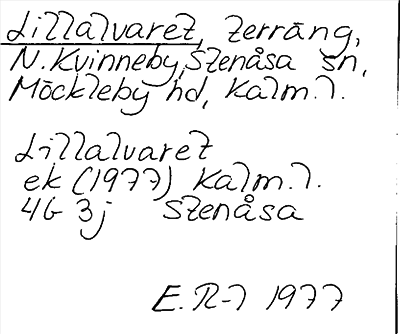 Lillalvaret, terräng,
N. Kvinneby, Stenåsa sn,
Möckleby hd, Kalm. l.
Lillalvaret
ek (1977) Kalm. l.
4G 3j Stenåsa
E. R-l 1977